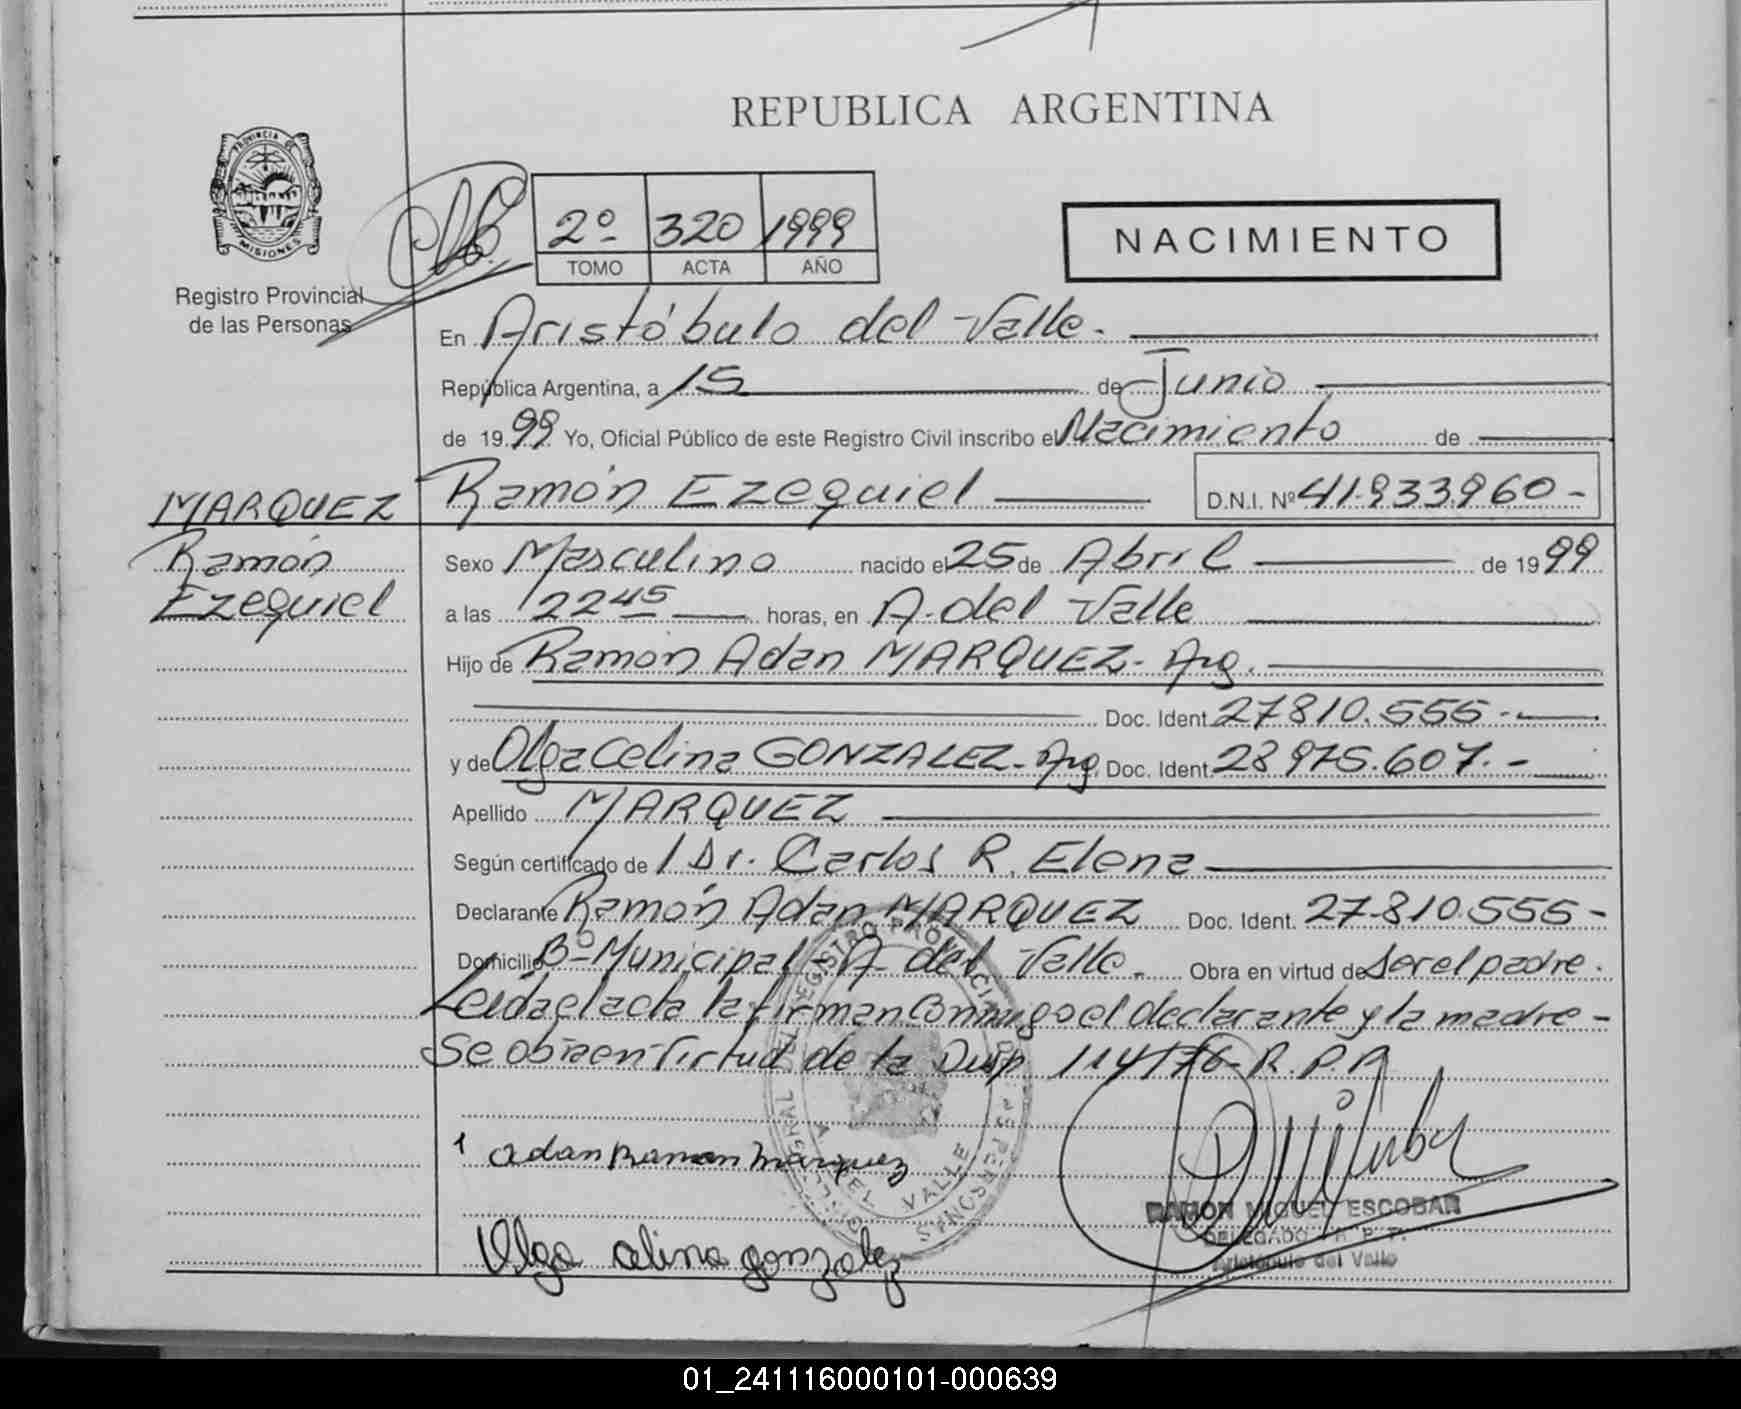 REPUBLICA ARGENTINA
PROVINCIA DE
MISIONES
Registro Provincial
de las Personas
2º 320 1999
TOMO ACTA AÑO
NACIMIENTO
En Aristóbulo del Valle.
República Argentina, a 15 de Junio
de 1999 Yo, Oficial Público de este Registro Civil inscribo el Nacimiento de
MARQUEZ Ramón Ezequiel D.N.I. Nº 41.933.960-
Ramón Sexo Masculino nacido el 25 de Abril de 1999
Ezequiel a las 22 45 horas, en A. del Valle
Hijo de Ramón Adan MARQUEZ- Arg.
Doc. Ident. 27810.555.-
y de Olga Celina GONZALEZ- Arg. Doc. Ident. 28 975.607.-
Apellido MARQUEZ
Según certificado de Dr. Carlos R. Elena
Declarante Ramón Adan MARQUEZ Doc. Ident. 27.810.555-
Domicilio Bº Municipal - A. del Valle. Obra en virtud de ser el padre.
Leída el acta la firman conmigo el declarante y la madre-
Se obra en virtud de la Disp. 114/76-R.P.P.
Adan Ramon Marquez
Olga celina gonzalez
REGISTRO PROVINCIAL DE LAS PERSONAS
A. DEL VALLE
RAMON MIGUEL ESCOBAR
DELEGADO R. P. P.
Aristóbulo del Valle
01_241116000101-000639